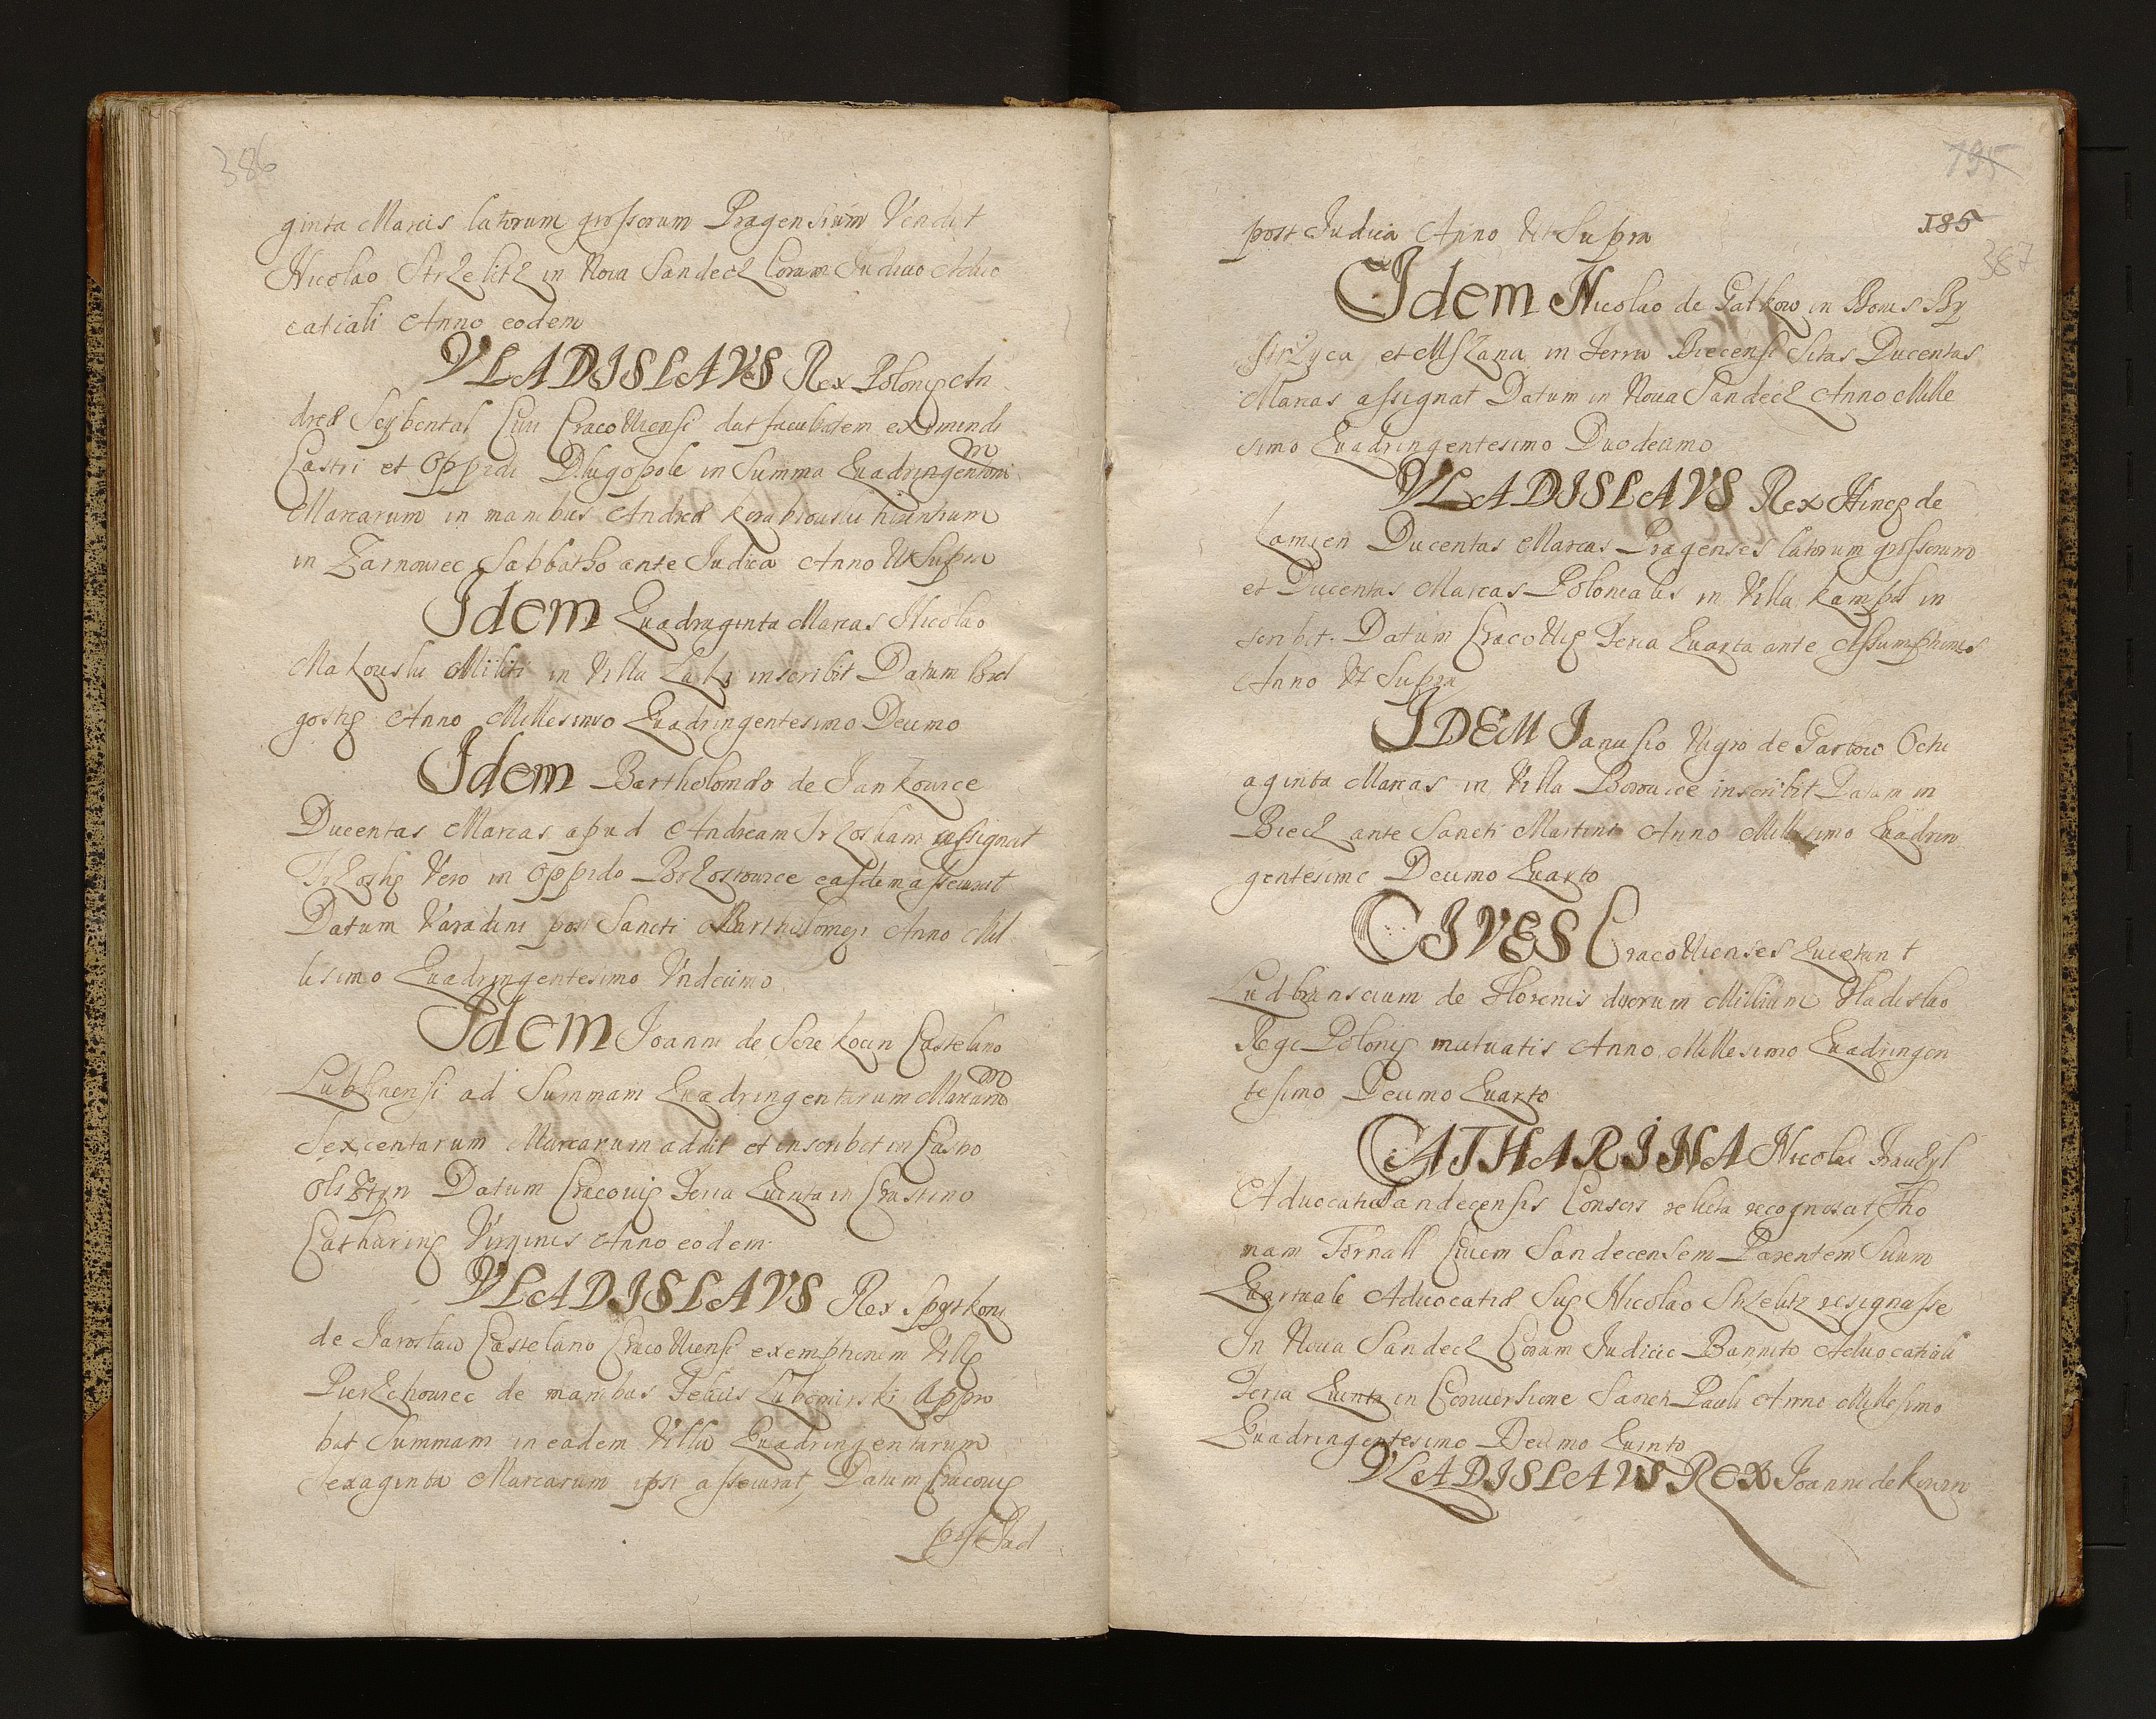 386
ginta Marcis latorum grossorum Pragensium Vendit
Nicolao Strzelitz in Noua Sandecz Coram Iudicio Aduo
catiali Anno eodem
VLADISLAVS Rex Polonię An
dreæ Seybental Ciui Cracouiensi dat facultatem eximendi
Castri et Oppidi Dlugopole in Summa Quadringentarum
Marcarum in manibus Andreæ
in Zarnowiec Sabbatho ante Iudica Anno Vt Supra
Idem Quadraginta Marcas Nicolao
Makouski Militi in Villa Laki inscribit Datum
gostię Anno Millesimo Quadringentesimo Decimo
Idem Bartholomæo de Jankowice
Ducentas Marcas apud Andream Trzoskam assignat
Trzoska Vero in Oppido Brzostowice easdem assecurat
Datum Varadini post Sancti Bartholomęi Anno Mil
lesimo Quadringentesimo Vndecimo
Idem Joanni de Scze kocin Castelano
Lublinensi ad Summam Quadringentarum Marcarum
Sexcentarum Marcarum addit et inscribit in Castro
Olsztyn Datum Cracouię Feria Quinta in Crastino
Catharinę Virginis Anno eodem
VLADISLAVS Rex Spytkoni
de Jaroslaw Castelano Cracouiensi exemptionem Villę
Pierzchowiec de manibus Felicis Appro
bat Summam in eadem Villa Quadringentarum
Sexaginta Marcarum ipsi assecurat, Datum Cracouię
post Iud
195
185
387
post Iudica Anno Vt Supra
Idem Nicolao de Gatkow in Bonis By
strzyca et Mszana in Terra Biecensi Sitas Ducentas
Marcas assignat Datum in Noua Sandecz Anno Mille
simo Quadringentesimo Duodecimo
VLADISLAVS Rex Hincę de
kamien Ducentas Marcas Pragenses latorum grossorum
et Ducentas Marcas Polonicalis in Villa in
scribit. Datum Cracouię Feria Quarta ante Assumptionis
Anno Vt Supra
IDEM Janusio Nigro de Garbow Octu
aginta Marcas in Villa Borowice inscribit Datum in
Biecz ante Sancti Martini Anno Millesimo Quadrin
gentesimo Decimo Quarto
CIVES Cracouienses Quietant
de Florenis duorum Millium Vladislao
Rege Polonię mutuatis Anno Millesimo Quadringen
tesimo Decimo Quarto
CATHARINA Nicolai
Aduocati Sandecensis Consors relicta recognoscit, Tho
mam Tornall Ciuem Sandecensem Parentem Suum
Quartuale Aduocatiæ Suę Nicolao Strzelitz resignasse
In Noua Sandecz Coram Iudicio Bannito Aduocatiali
Feria Quinta in Conuersione Sancti Pauli Anno Millesimo
Quadringentesimo Decimo Quinto
VLADISLAVS REX Joanni de